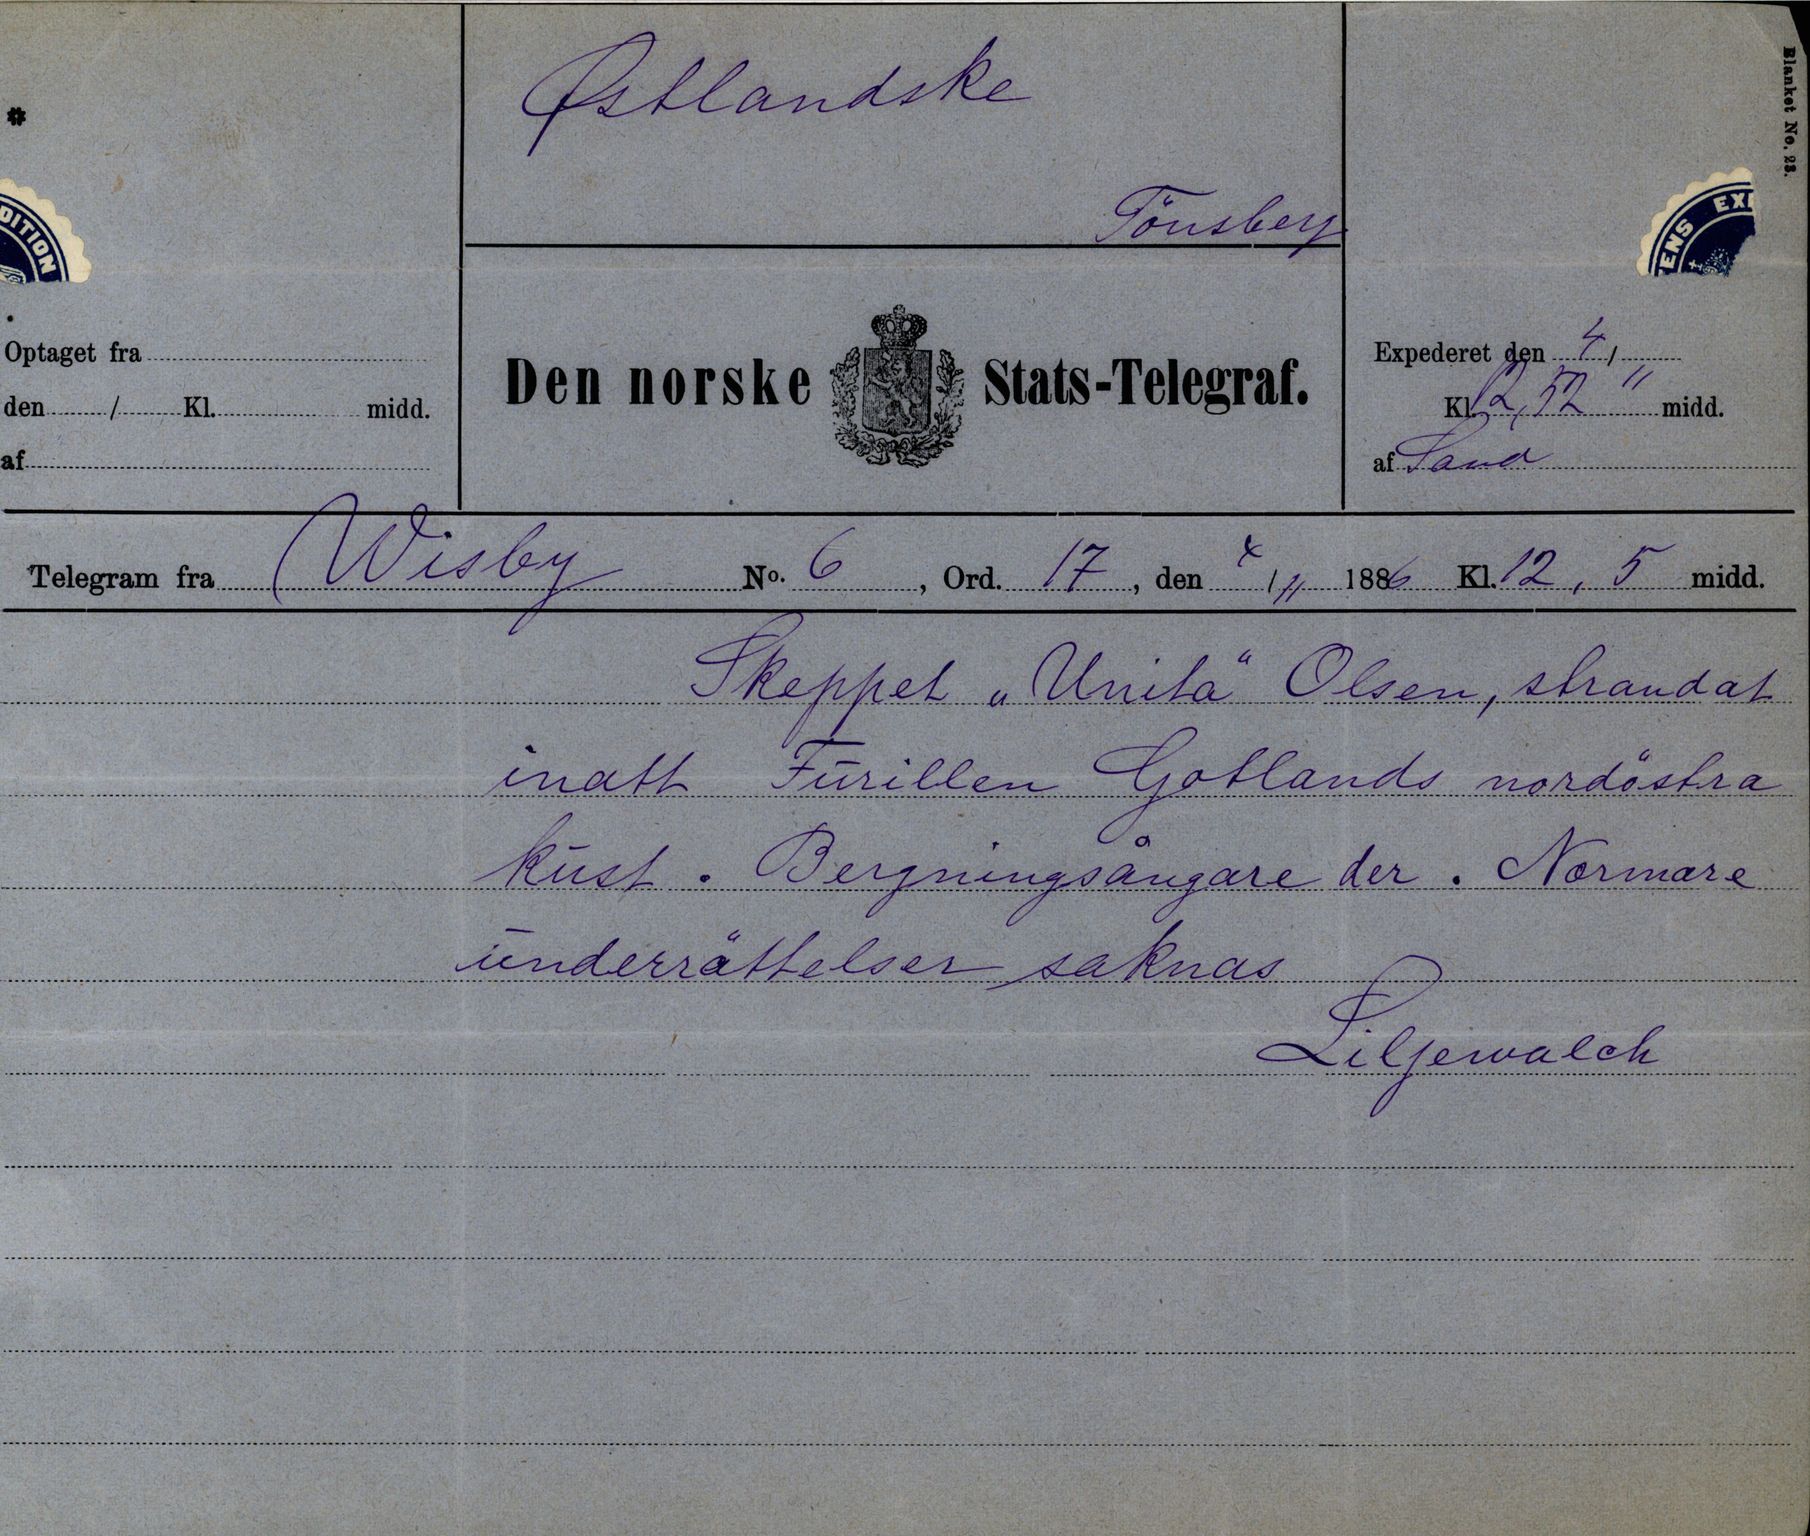 Østlandske
Tönsberg
Blanket No. 23.
DITION
ENS EX
Optaget fra
den / Kl. midd.
af
Den norske Stats-Telegraf.
Expederet den 4 /
Kl. 12,52 " midd.
af Sand
Telegram fra Wisby No. 6, Ord. 17, den 4/11 1886 Kl. 12,5 midd.
Skeppet „Unita“ Olsen, strandat
inatt Furillen Gotlands nordöstra
kust. Bergningsångare der. Närmare
underrättelser saknas
Liljewalch